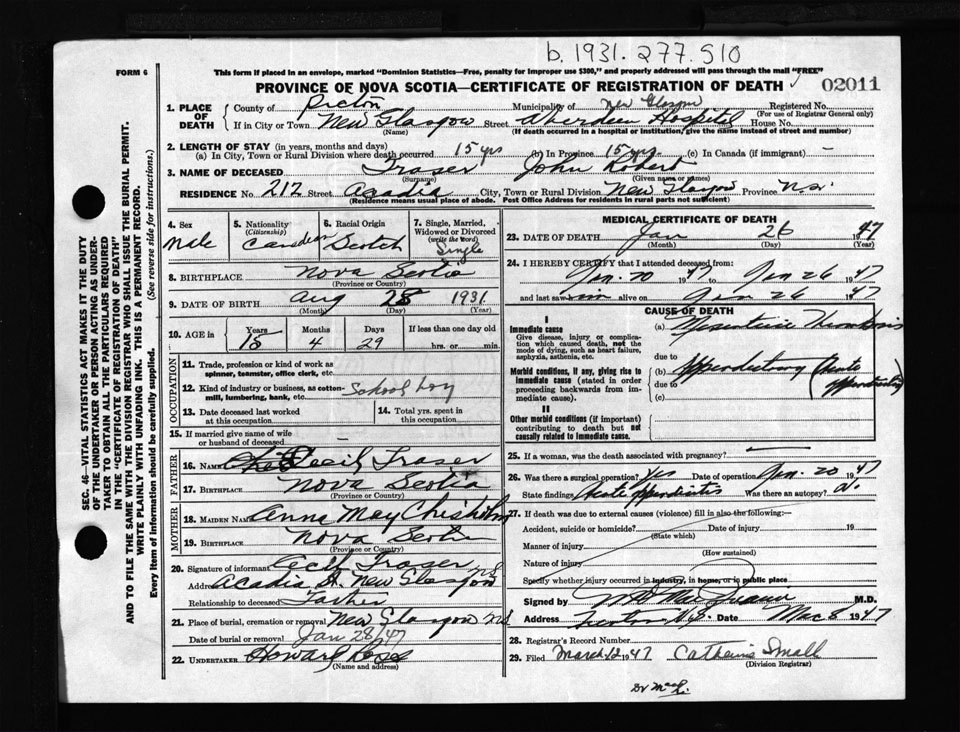 b. 1931. 277. 510
FORM 6
This form if placed in an envelope, marked "Dominion Statistics—Free, penalty for improper use $300," and properly addressed will pass through the mail "FREE"
PROVINCE OF NOVA SCOTIA—CERTIFICATE OF REGISTRATION OF DEATH
02011
SEC. 46—VITAL STATISTICS ACT MAKES IT THE DUTY
OF THE UNDERTAKER OR PERSON ACTING AS UNDER-
TAKER TO OBTAIN ALL THE PARTICULARS REQUIRED
IN THE "CERTIFICATE OF REGISTRATION OF DEATH"
AND TO FILE THE SAME WITH THE DIVISION REGISTRAR WHO SHALL ISSUE THE BURIAL PERMIT.
WRITE PLAINLY WITH UNFADING INK. THIS IS A PERMANENT RECORD.
Every item of information should be carefully supplied. (See reverse side for instructions.)
1. PLACE OF DEATH County of Pictou Municipality of New Glasgow Registered No.
(For use of Registrar General only)
If in City or Town New Glasgow Street Aberdeen Hospital House No.
(Name) (If death occurred in a hospital or institution, give the name instead of street and number)
2. LENGTH OF STAY (in years, months and days)
(a) In City, Town or Rural Division where death occurred 15 yrs (b) In Province 15 yrs (c) In Canada (if immigrant) —
3. NAME OF DECEASED Fraser John Robert
(Surname) (Given name or names)
RESIDENCE No. 212 Street Acadia City, Town or Rural Division New Glasgow Province N.S.
(Residence means usual place of abode. Post Office Address for residents in rural parts not sufficient)
4. Sex
Male
5. Nationality
(Citizenship)
Canadian
6. Racial Origin
Scotch
7. Single, Married,
Widowed or Divorced
(write the word)
Single
8. BIRTHPLACE Nova Scotia
(Province or Country)
9. DATE OF BIRTH Aug 28 1931
(Month) (Day) (Year)
10. AGE in Years Months Days If less than one day old
15 4 29 hrs. or min.
OCCUPATION
11. Trade, profession or kind of work as
spinner, teamster, office clerk, etc.
12. Kind of industry or business, as cotton-
mill, lumbering, bank, etc. School boy
13. Date deceased last worked
at this occupation
14. Total yrs. spent in
this occupation
15. If married give name of wife
or husband of deceased —
FATHER
16. NAME Cecil Fraser
17. BIRTHPLACE Nova Scotia
(Province or Country)
MOTHER
18. MAIDEN NAME Anna May Chisholm
19. BIRTHPLACE Nova Scotia
(Province or Country)
20. Signature of informant Cecil Fraser
Address Acadia St. New Glasgow NS
Relationship to deceased Father
21. Place of burial, cremation or removal New Glasgow NS
Date of burial or removal Jan 28/47
22. UNDERTAKER Howard Rose
(Name and address)
MEDICAL CERTIFICATE OF DEATH
23. DATE OF DEATH Jan 26 1947
(Month) (Day) (Year)
24. I HEREBY CERTIFY that I attended deceased from
Jan. 20 1947 to Jan 26 1947
and last saw him alive on Jan 26 1947
CAUSE OF DEATH
I
Immediate cause
Give disease, injury or complica-
tion which caused death, not the
mode of dying, such as heart failure,
asphyxia, asthenia, etc.
(a) Mesenteric Thrombosis
due to
Morbid conditions, if any, giving rise to
immediate cause (stated in order
proceeding backwards from im-
mediate cause).
(b) Appendectomy (Acute
due to appendicitis)
(c)
II
Other morbid conditions (if important)
contributing to death but not
causally related to immediate cause.
25. If a woman, was the death associated with pregnancy? —
26. Was there a surgical operation? Yes Date of operation Jan. 20 1947
State findings Acute Appendicitis Was there an autopsy?
27. If death was due to external causes (violence) fill in also the following:—
Accident, suicide or homicide? Date of injury 19
(State which)
Manner of injury
(How sustained)
Nature of injury
Specify whether injury occurred in industry, in home, or in public place
Signed by M.D.
Address N.S. Date Mar 8 1947
28. Registrar's Record Number
29. Filed March 12 1947 Catherine Small
(Division Registrar)